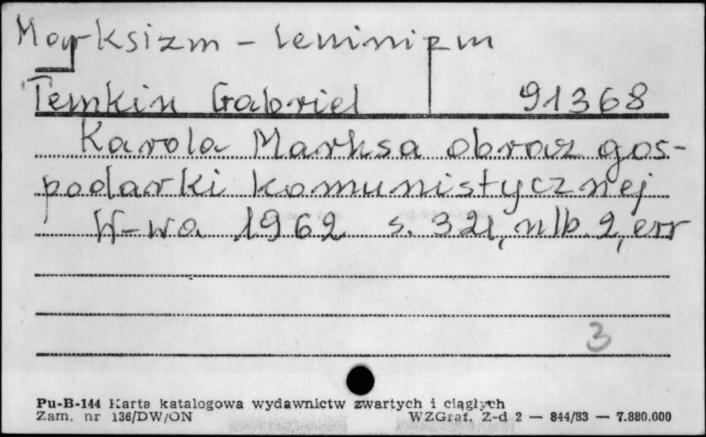 Marksizm - leninizm
Temkin Gabriel 91368
Karola Marksa obraz gos-
podarki komunistycznej
W-wa 1962 s. 321, nlb. 2, err
3
Pu-B-144 Karta katalogowa wydawnictw zwartych i ciągłych
Zam. nr 136/DW/ON WZGraf. Z-d 2 — 844/83 — 7.880.000